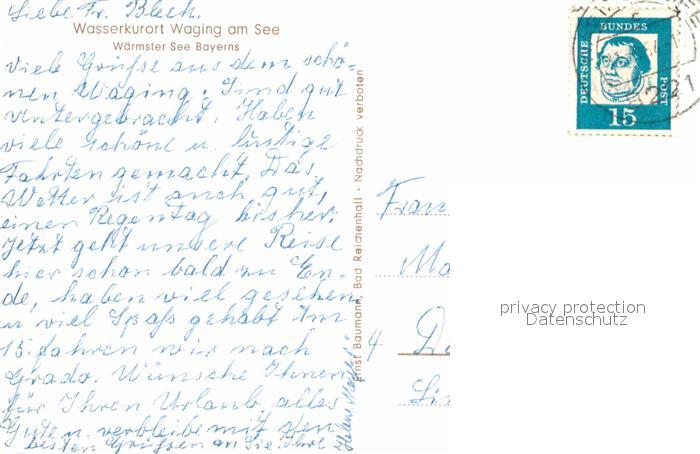 Liebe Fr. Bleck.
Wasserkurort Waging am See
Wärmster See Bayerns
viele Grüße aus dem schö-
nen Waging. Sind gut
untergebracht. Haben
viele schöne u. lustige
Fahrten gemacht. Das
Wetter ist auch gut,
einen Regentag bisher.
Jetzt geht unsere Reise
hier schon bald zu En-
de, haben viel gesehen
u viel Spaß gehabt. Am
15. fahren wir nach
Grado. Wünsche Ihnen
für Ihren Urlaub alles
Gute u. verbleibe mit den
besten Grüßen an Sie. Ihre
Helene
Ernst Baumann, Bad Reichenhall · Nachdruck verboten
DEUTSCHE
BUNDES
POST
15
221
Frau
Ma
4 D
Lin
privacy protection
Datenschutz